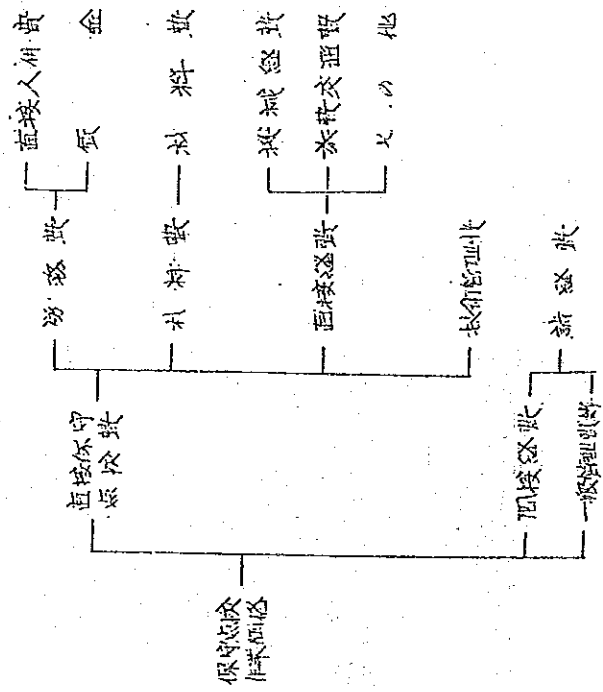 保守点検
作業価格
直接保守
点検費
労務費
直接人件費
賃金
材料費
材料費
直接経費
機械経費
旅費交通費
その他
技術管理費
間接経費
一般管理費等
諸経費